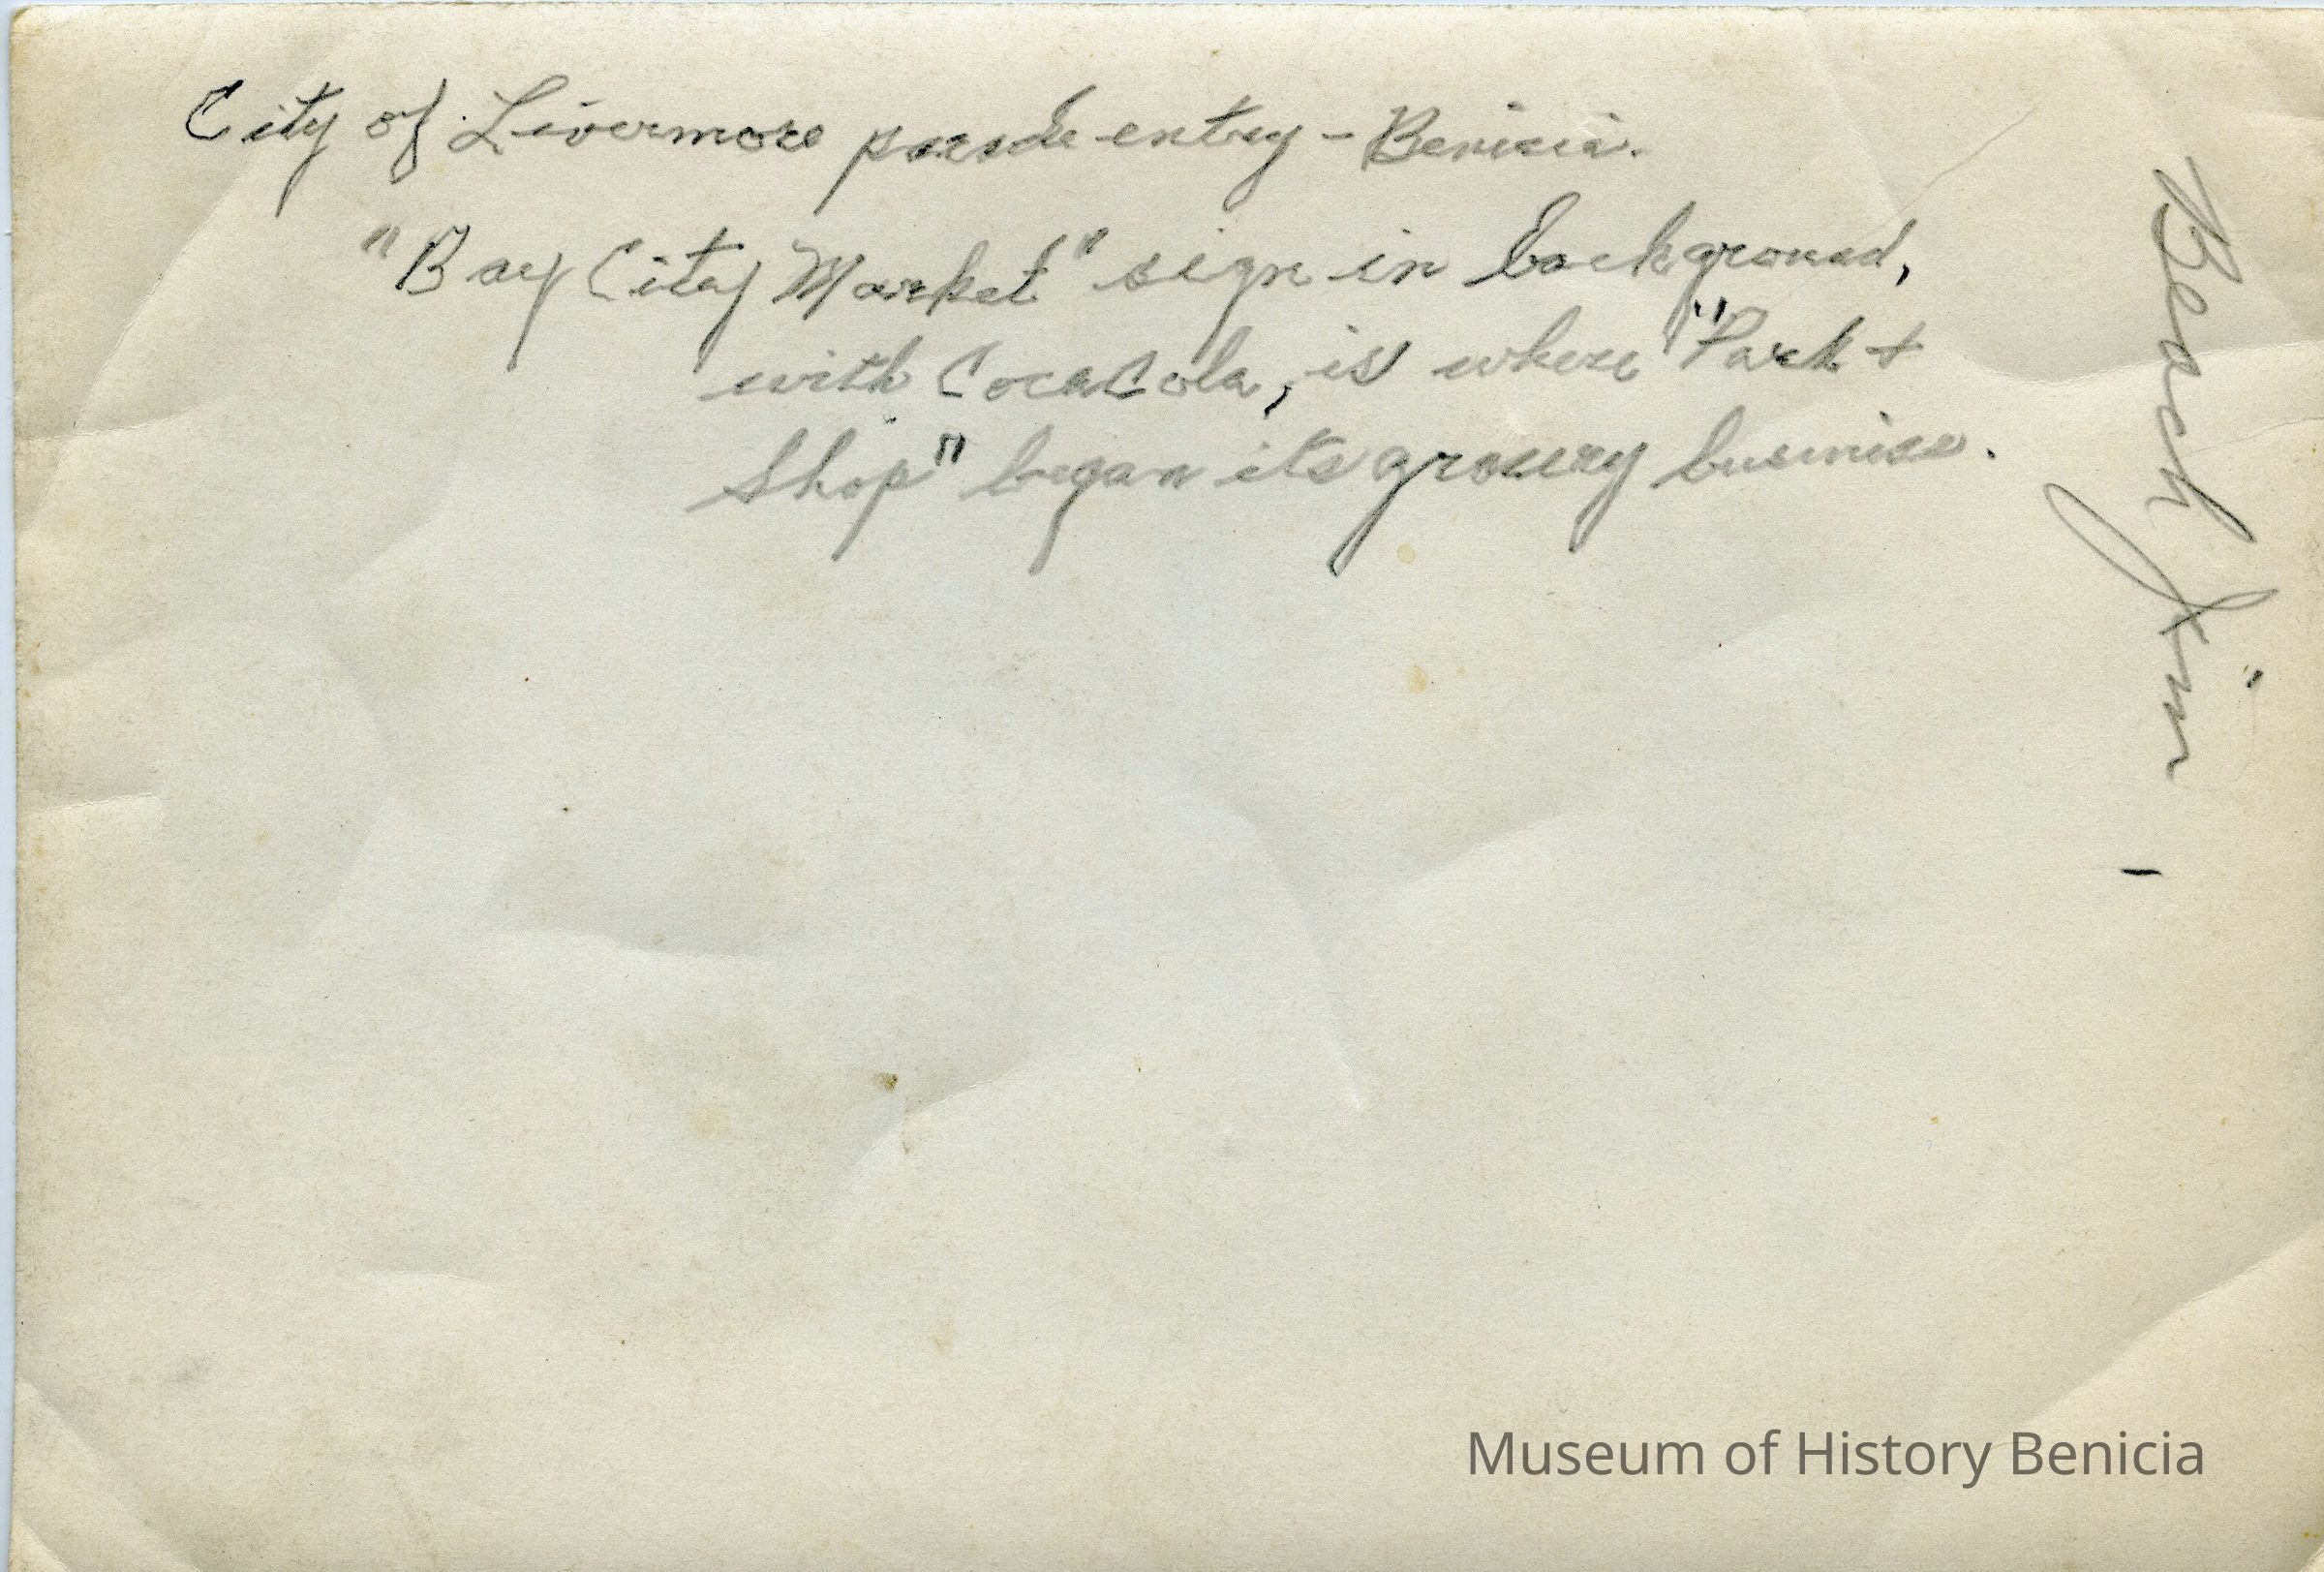 City of Livermore parade entry - Benicia.
"Bay City Market" sign in background,
with CocaCola, is where "Park +
Shop" began its grocery business.
Beach Jim
Museum of History Benicia